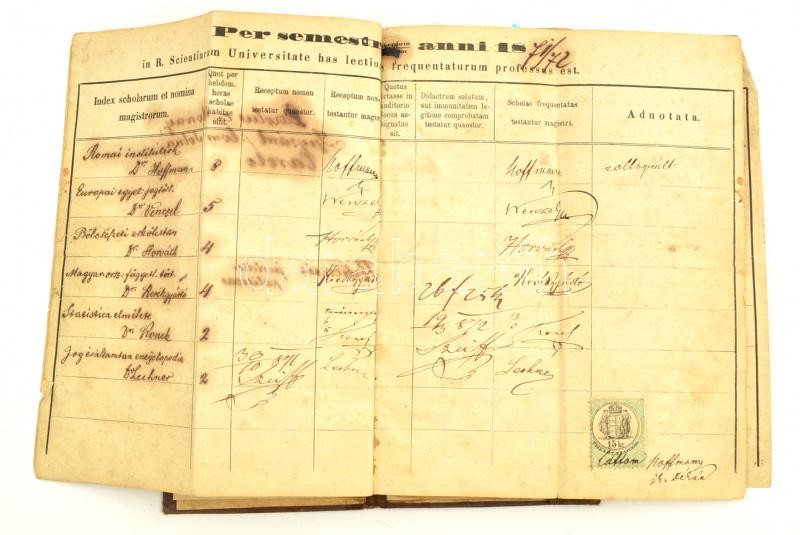 Per semestr anni 18 71/72
in R. Scientiarum Universitate has lectio frequentaturum professus est.
Index scholarum et nomina magistrorum.
Quot per hebdom. horas scholae habitae sint.
Receptum nomen testatur quaestor.
Receptum nom testantur magis
Quotus
in auditorio locus assignatus sit.
Didactrum solutum, aut immunitatem legitime comprobatam testatur quaestor.
Scholas frequentatas testantur magistri.
Adnotata.
Romai institutiók
Dr Hoffmann 8 Hoffmann Hoffmann colloquált
Europai egyet. jogtört.
Dr Wenczel 5 Wenzel Wenzel
Bölcsészeti erkölcstan
Dr Horváth 4 Horváth Horváth
Magyarorsz. függetl. tört.
Dr Kerékgyártó 4 Kerékgyártó Kerékgyártó
26 f 25 k
Statistica elmélete
Dr Konek 2 Konek
19/3 872
Jog és államtan encyclopedia
Dr Lechner 2 Lechner
30/10 871
15 k
Láttam Hoffmann
jk. dékán